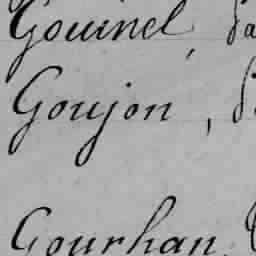 Gouinel,
Goujon,
Gourhan,